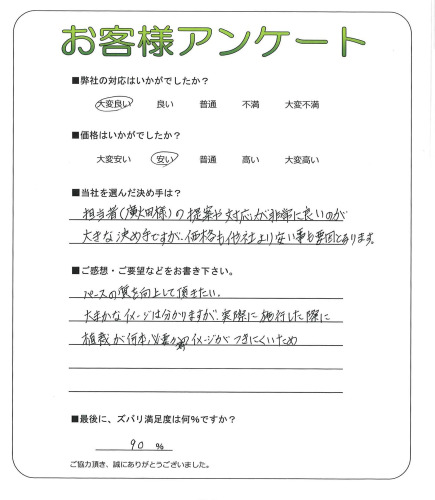 お客様アンケート
■弊社の対応はいかがでしたか？
大変良い 良い 普通 不満 大変不満
■価格はいかがでしたか？
大変安い 安い 普通 高い 大変高い
■当社を選んだ決め手は？
担当者(様)の提案や対応が非常に良いのが
大きな決め手ですが、価格も他社より安い事も要因とあります。
■ご感想・ご要望などをお書き下さい。
パースの質を向上して頂きたい。
大まかなイメージは分かりますが、実際に施行した際に
植栽が何本必要かイメージがつきにくいため
■最後に、ズバリ満足度は何％ですか？
90 %
ご協力頂き、誠にありがとうございました。